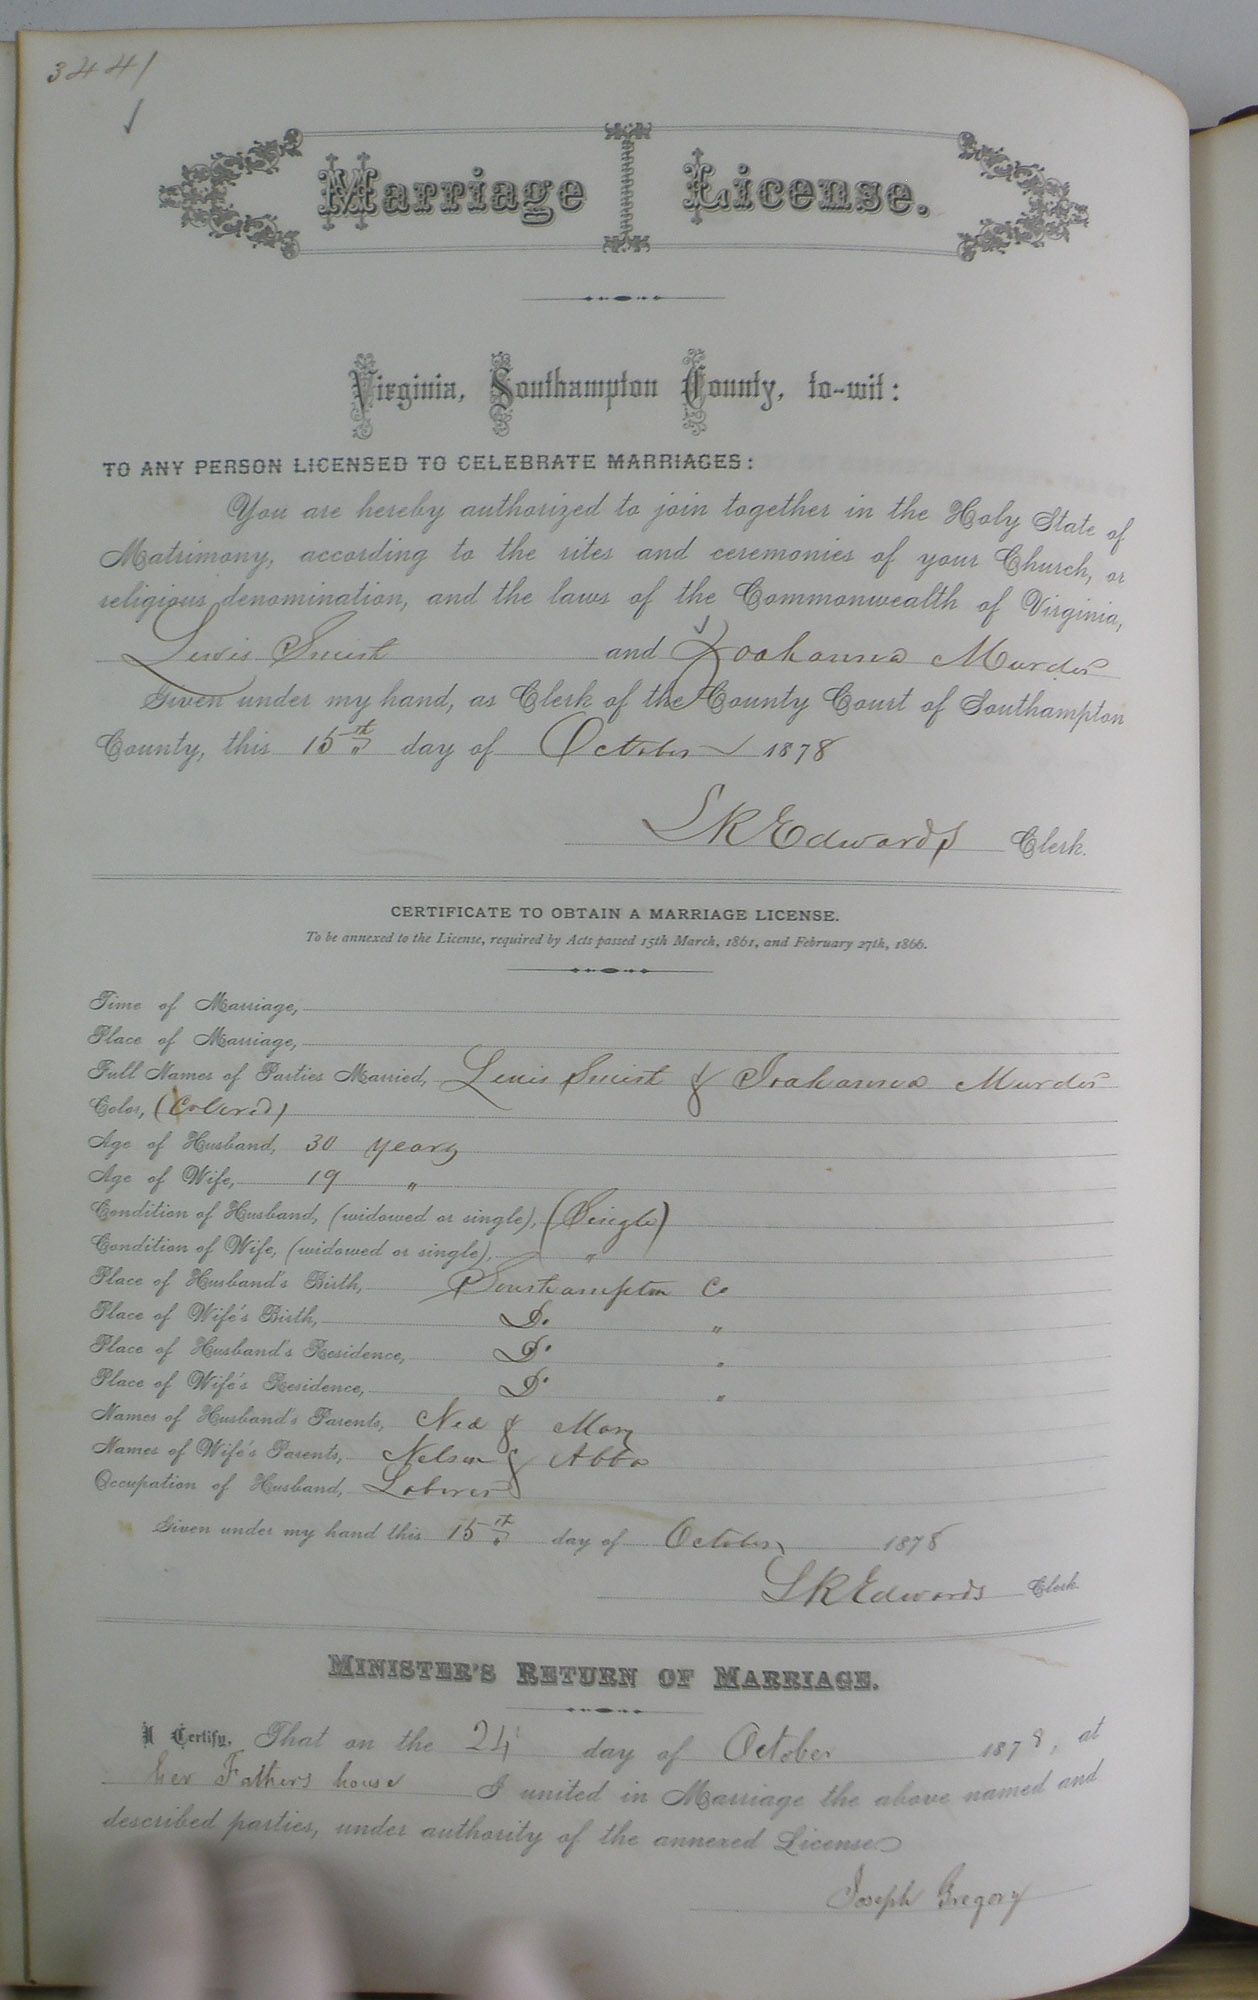 3441
Marriage License.
Virginia, Southampton County, to-wit:
TO ANY PERSON LICENSED TO CELEBRATE MARRIAGES:
You are hereby authorized to join together in the Holy State of
Matrimony, according to the rites and ceremonies of your Church, or
religious denomination, and the laws of the Commonwealth of Virginia,
Lewis and
Given under my hand, as Clerk of the County Court of Southampton
County, this 15th day of October 1878
Edwards Clerk.
CERTIFICATE TO OBTAIN A MARRIAGE LICENSE.
To be annexed to the License, required by Acts passed 15th March, 1861, and February 27th, 1866.
Time of Marriage,
Place of Marriage,
Full Names of Parties Married, Lewis &
Color, (Colored)
Age of Husband, 30 years
Age of Wife, 19 "
Condition of Husband, (widowed or single), (Single)
Condition of Wife, (widowed or single), "
Place of Husband's Birth, Southampton Co
Place of Wife's Birth, Do "
Place of Husband's Residence, Do "
Place of Wife's Residence, Do "
Names of Husband's Parents, Ned & Mary
Names of Wife's Parents, Nelson & Abba
Occupation of Husband, Laborer
Given under my hand this 15th day of October 1878
Edwards Clerk.
MINISTER'S RETURN OF MARRIAGE.
I Certify, That on the 24 day of October 1878, at
her Fathers house I united in Marriage the above named and
described parties, under authority of the annexed License
Joseph Gregory